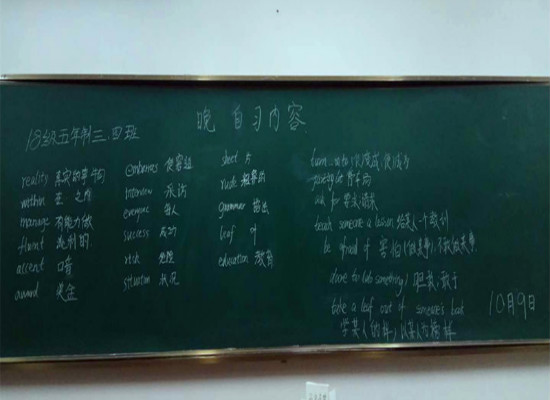 晚自习内容
18级五年制三.四班
reality 真实的事于的
within 在 之内
manage 有能力做
fluent 流利的
accent 口音
award 奖金
embarrass 使窘迫
interview 采访
everyone 每人
success 成功
risk 危险
situation 状况
sheet 片
rude 粗鲁的
grammar 语法
leaf 叶
education 教育
ask for 要求,请求
teach someone a lesson 给某人一个教训
be afraid of 害怕
dare to (do something) 胆敢,敢于
take a leaf out of someone's book
学某人的样,以某人为榜样
10月9日